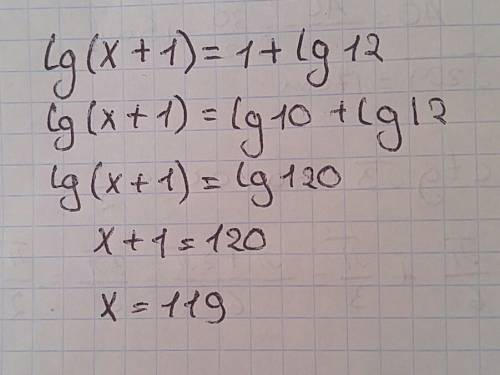 lg(x+1)=1+lg12
lg(x+1)=lg10+lg12
lg(x+1)=lg120
x+1=120
x=119